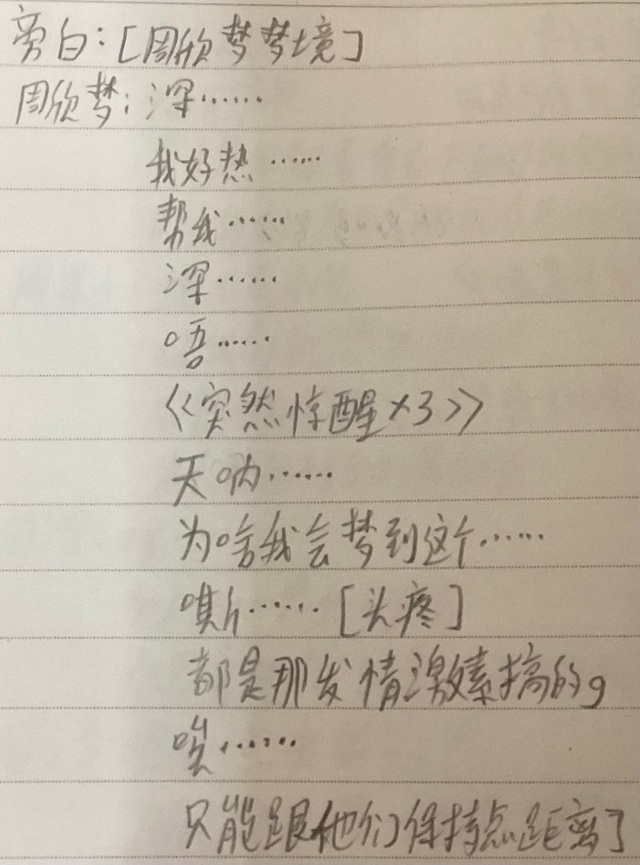 旁白：[周欣梦梦境]
周欣梦：深……
我好热……
帮我……
深……
唔……
《突然惊醒×3》
天呐……
为啥我会梦到这个……
嘶……[头疼]
都是那发情激素搞的，
唉……
只能跟他们保持点距离了